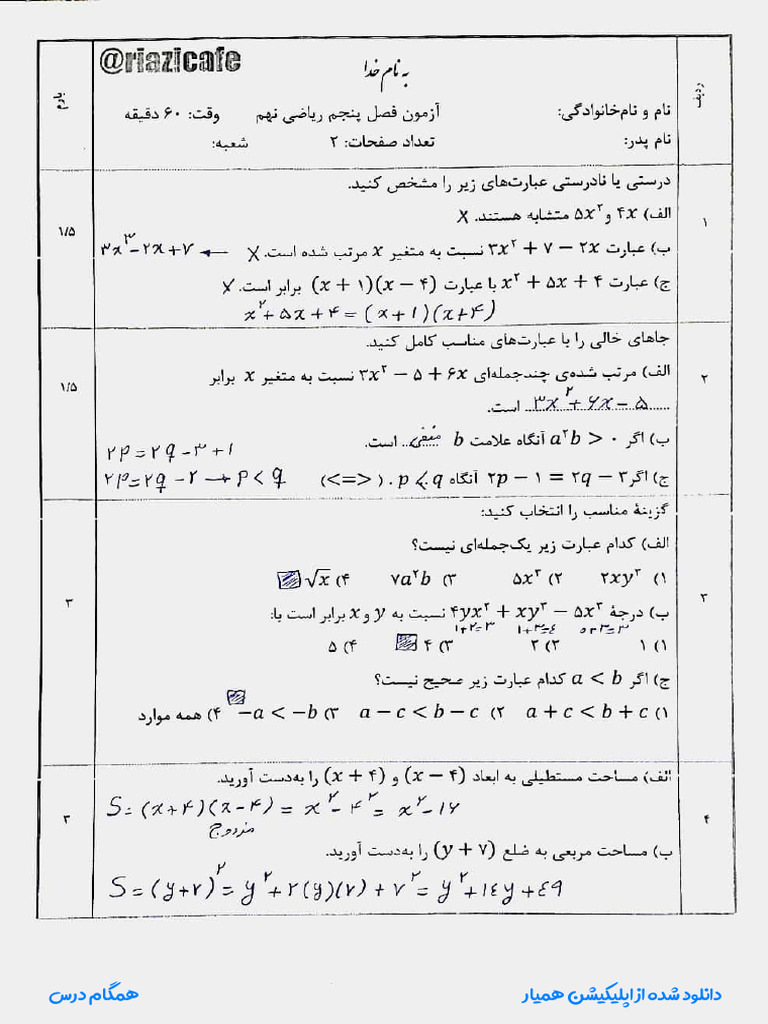 @riazicafe
به نام خدا
ردیف
بارم
نام و نام‌خانوادگی: آزمون فصل پنجم ریاضی نهم وقت: ۶۰ دقیقه
نام پدر: تعداد صفحات: ۲ شعبه:
۱
درستی یا نادرستی عبارت‌های زیر را مشخص کنید.
الف) ۴x و ۵x² متشابه هستند. X
۱/۵
ب) عبارت ۳x² + ۷ − ۲x نسبت به متغیر x مرتب شده است. X ← ۳x³ − ۲x + ۷
ج) عبارت x² + ۵x + ۴ با عبارت (x + ۱)(x − ۴) برابر است. X
x² + ۵x + ۴ = (x + ۱)(x + ۴)
۲
جاهای خالی را با عبارت‌های مناسب کامل کنید.
الف) مرتب شده‌ی چندجمله‌ای ۳x² − ۵ + ۶x نسبت به متغیر x برابر
۱/۵
۳x² + ۶x − ۵ است.
ب) اگر a²b > ۰ آنگاه علامت b منفی است.
۲p = ۲q − ۳ + ۱
ج) اگر ۲p − ۱ = ۲q − ۳ آنگاه p < q . (<=>)
۲p = ۲q − ۲ → p < q
۳
گزینهٔ مناسب را انتخاب کنید:
الف) کدام عبارت زیر یک‌جمله‌ای نیست؟
۱) ۲xy³ ۲) ۵x³ ۳) ۷a²b ۴) √x
۳
ب) درجهٔ ۴yx² + xy³ − ۵x³ نسبت به y و x برابر است با:
۱+۲=۳ ۱+۳=۴ ۰+۳=۳
۱) ۱ ۲) ۲ ۳) ۴ ۴) ۵
ج) اگر a < b کدام عبارت زیر صحیح نیست؟
۱) a + c < b + c ۲) a − c < b − c ۳) −a < −b ۴) همه موارد
۴
الف) مساحت مستطیلی به ابعاد (x − ۴) و (x + ۴) را به‌دست آورید.
S = (x+۴)(x−۴) = x² − ۴² = x² − ۱۶
مزدوج
۳
ب) مساحت مربعی به ضلع (y + ۷) را به‌دست آورید.
S = (y+۷)² = y² + ۲(y)(۷) + ۷² = y² + ۱۴y + ۴۹
دانلود شده از اپلیکیشن همیار
همگام درس